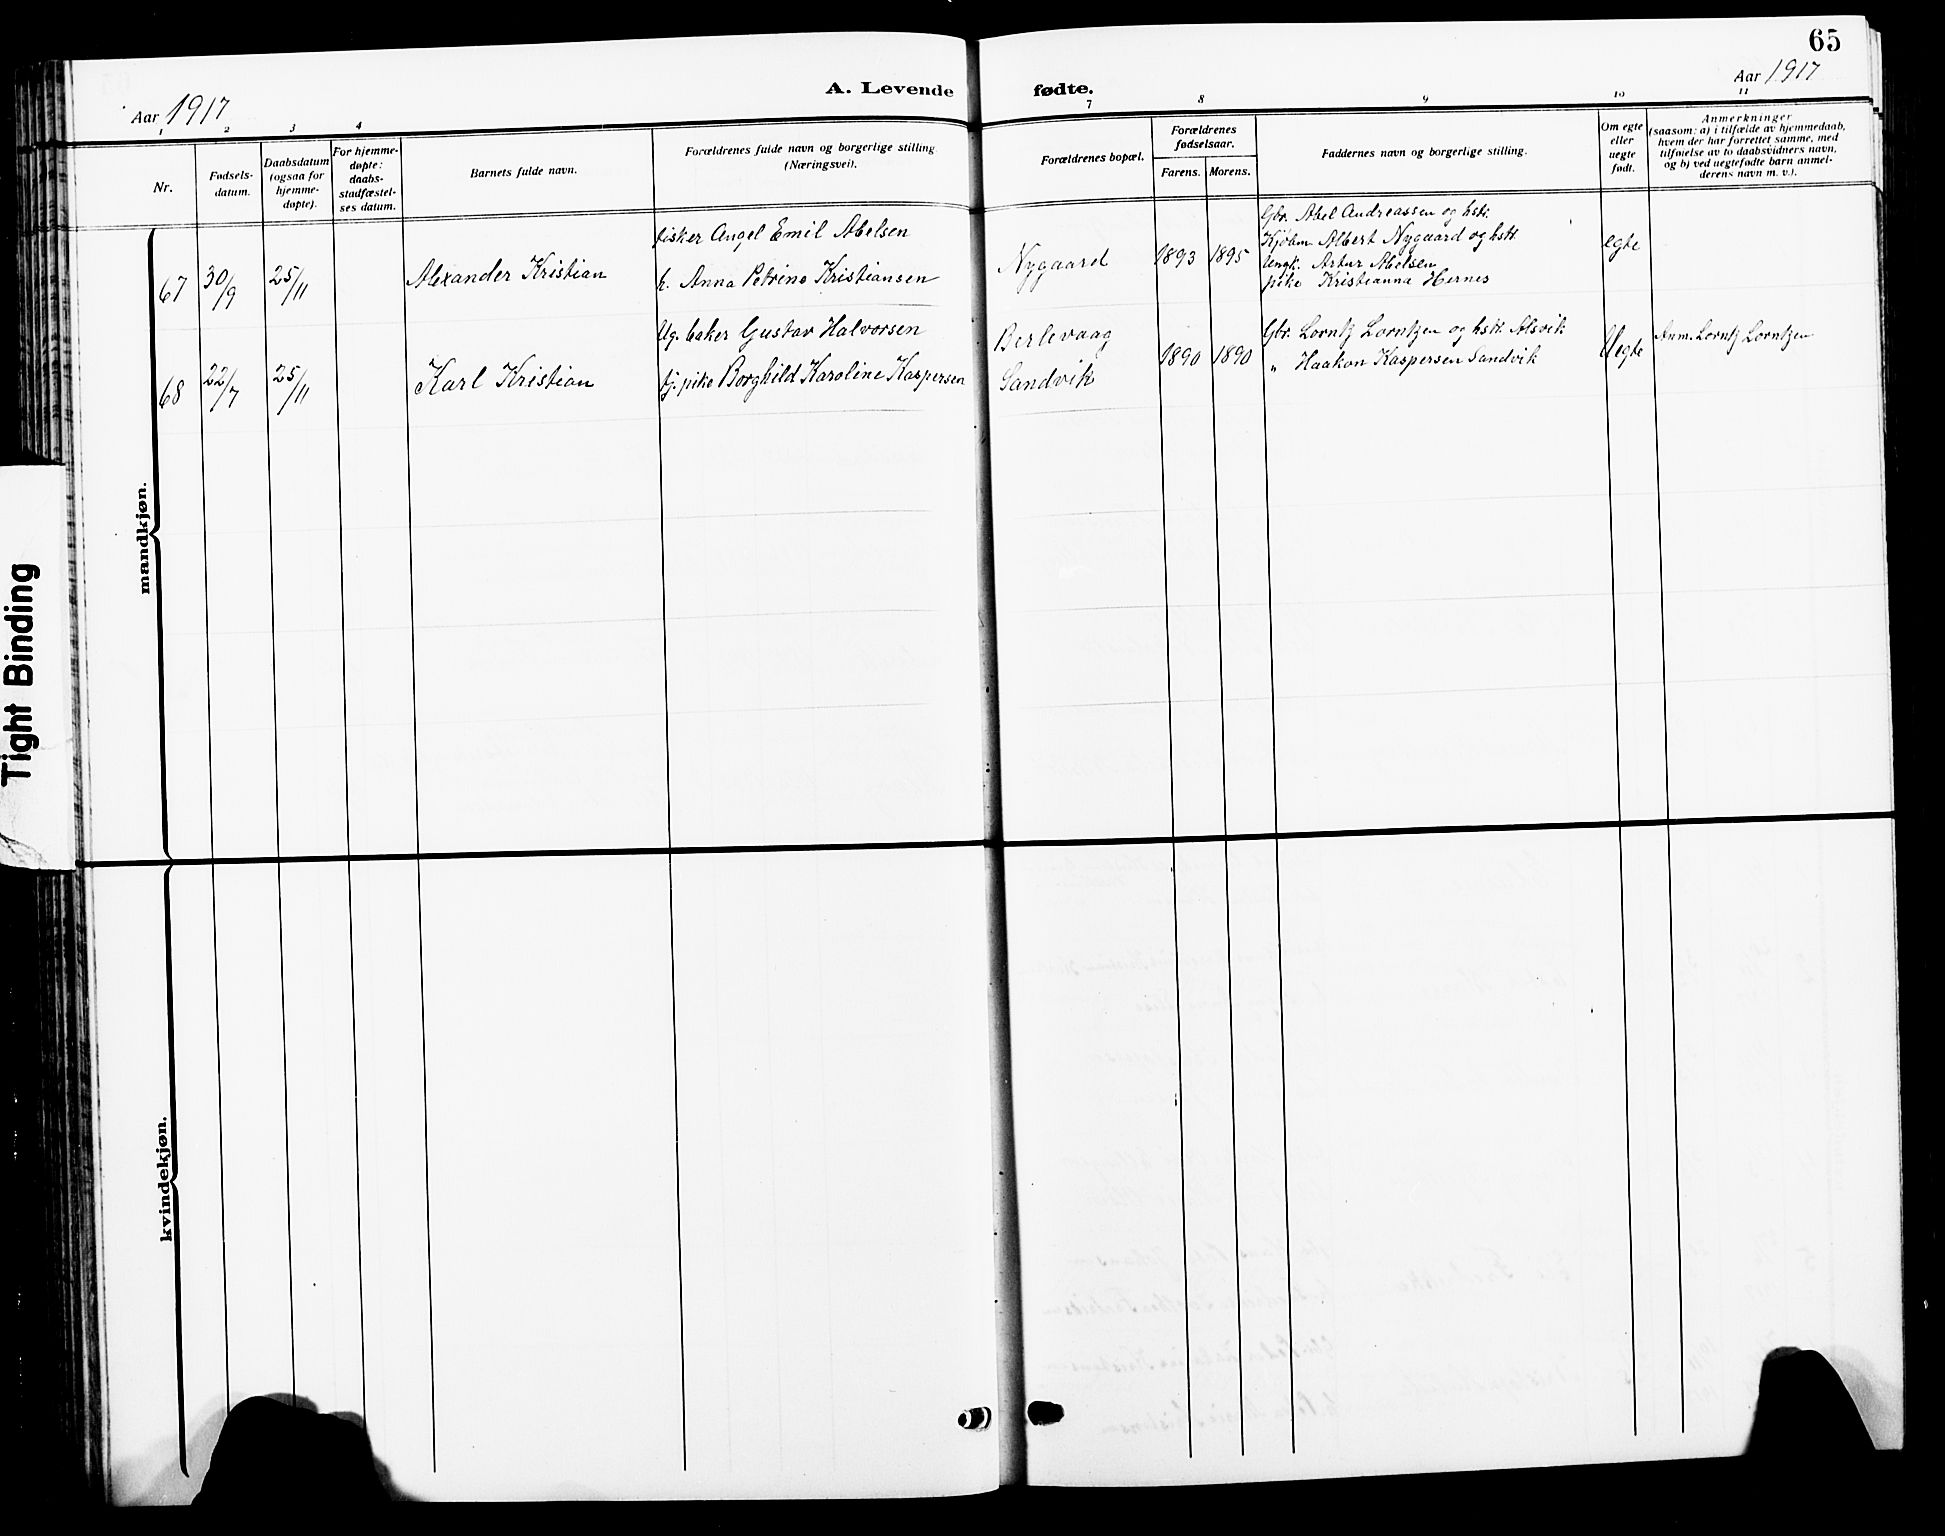 65
Aar 1917
A. Levende fødte.
Aar 1917
1 2 3 4 7 8 9 10 11
Nr.
Fødsels-
datum.
Daabsdatum
(ogsaa for
hjemme-
døpte).
For hjemme-
døpte:
daabs-
stadfæstel-
ses datum.
Barnets fulde navn.
Forældrenes fulde navn og borgerlige stilling
(Næringsvei).
Forældrenes bopæl.
Forældrenes
fødselsaar.
Farens. Morens.
Faddernes navn og borgerlige stilling.
Om egte
eller
uegte
født.
Anmerkninger
(saasom: a) i tilfælde av hjemmedaab,
hvem der har forrettet samme, med
tilføielse av to daabsvidners navn,
og b) ved uegtefødte barn anmel-
derens navn m. v.).
mandkjøn.
67 30/9 25/11 Alexander Kristian
fisker Angel Emil Abelsen
h. Anna Petrine Kristiansen
Nygaard 1893 1895
Gbr. Abel Andreassen og hstr.
Kjøbm. Albert Nygaard og hstt.
Ungk. Artur Abelsen
pike Kristianna Hernes
egte
68 22/7 25/11 Karl Kristian
Ug. baker Gustav Halvorsen
tj. pike Borghild Karoline Kaspersen
Berlevaag
Sandvik
1890 1890
Gbr. Lorntz Lorntzen og hstt. Alsvik
„ Haakon Kaspersen Sandvik
Uegte
Anm. Lorntz Lorntzen
kvindekjøn.
Tight Binding